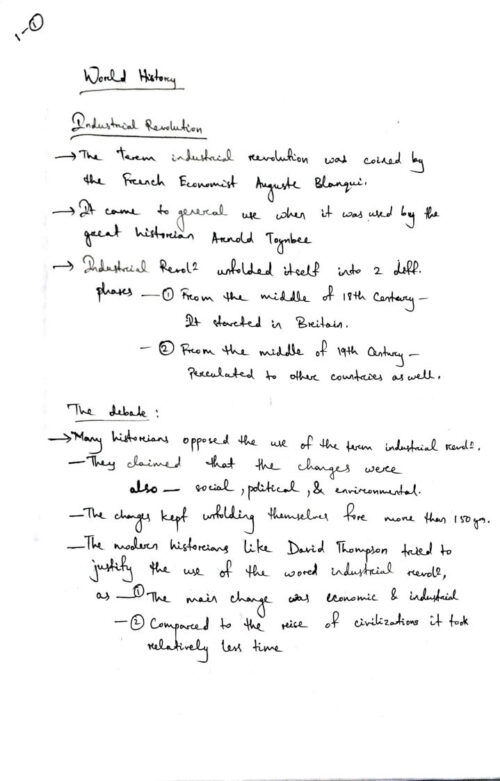 1-①
World History
Industrial Revolution
→ The term industrial revolution was coined by
the French Economist Auguste Blanqui.
→ It came to general use when it was used by the
great historian Arnold Toynbee
→ Industrial Revolⁿ unfolded itself into 2 diff.
phases — ① From the middle of 18th Century –
It started in Britain.
– ② From the middle of 19th Century –
Perculated to other countries as well.
The debate :
→ Many historians opposed the use of the term industrial revolⁿ.
– They claimed that the changes were
also – social, political, & environmental.
– The changes kept unfolding themselves for more than 150 yrs.
– The modern historians like David Thompson tried to
justify the use of the word industrial revolⁿ,
as – ① The main change was economic & industrial
– ② Compared to the rise of civilizations it took
relatively less time